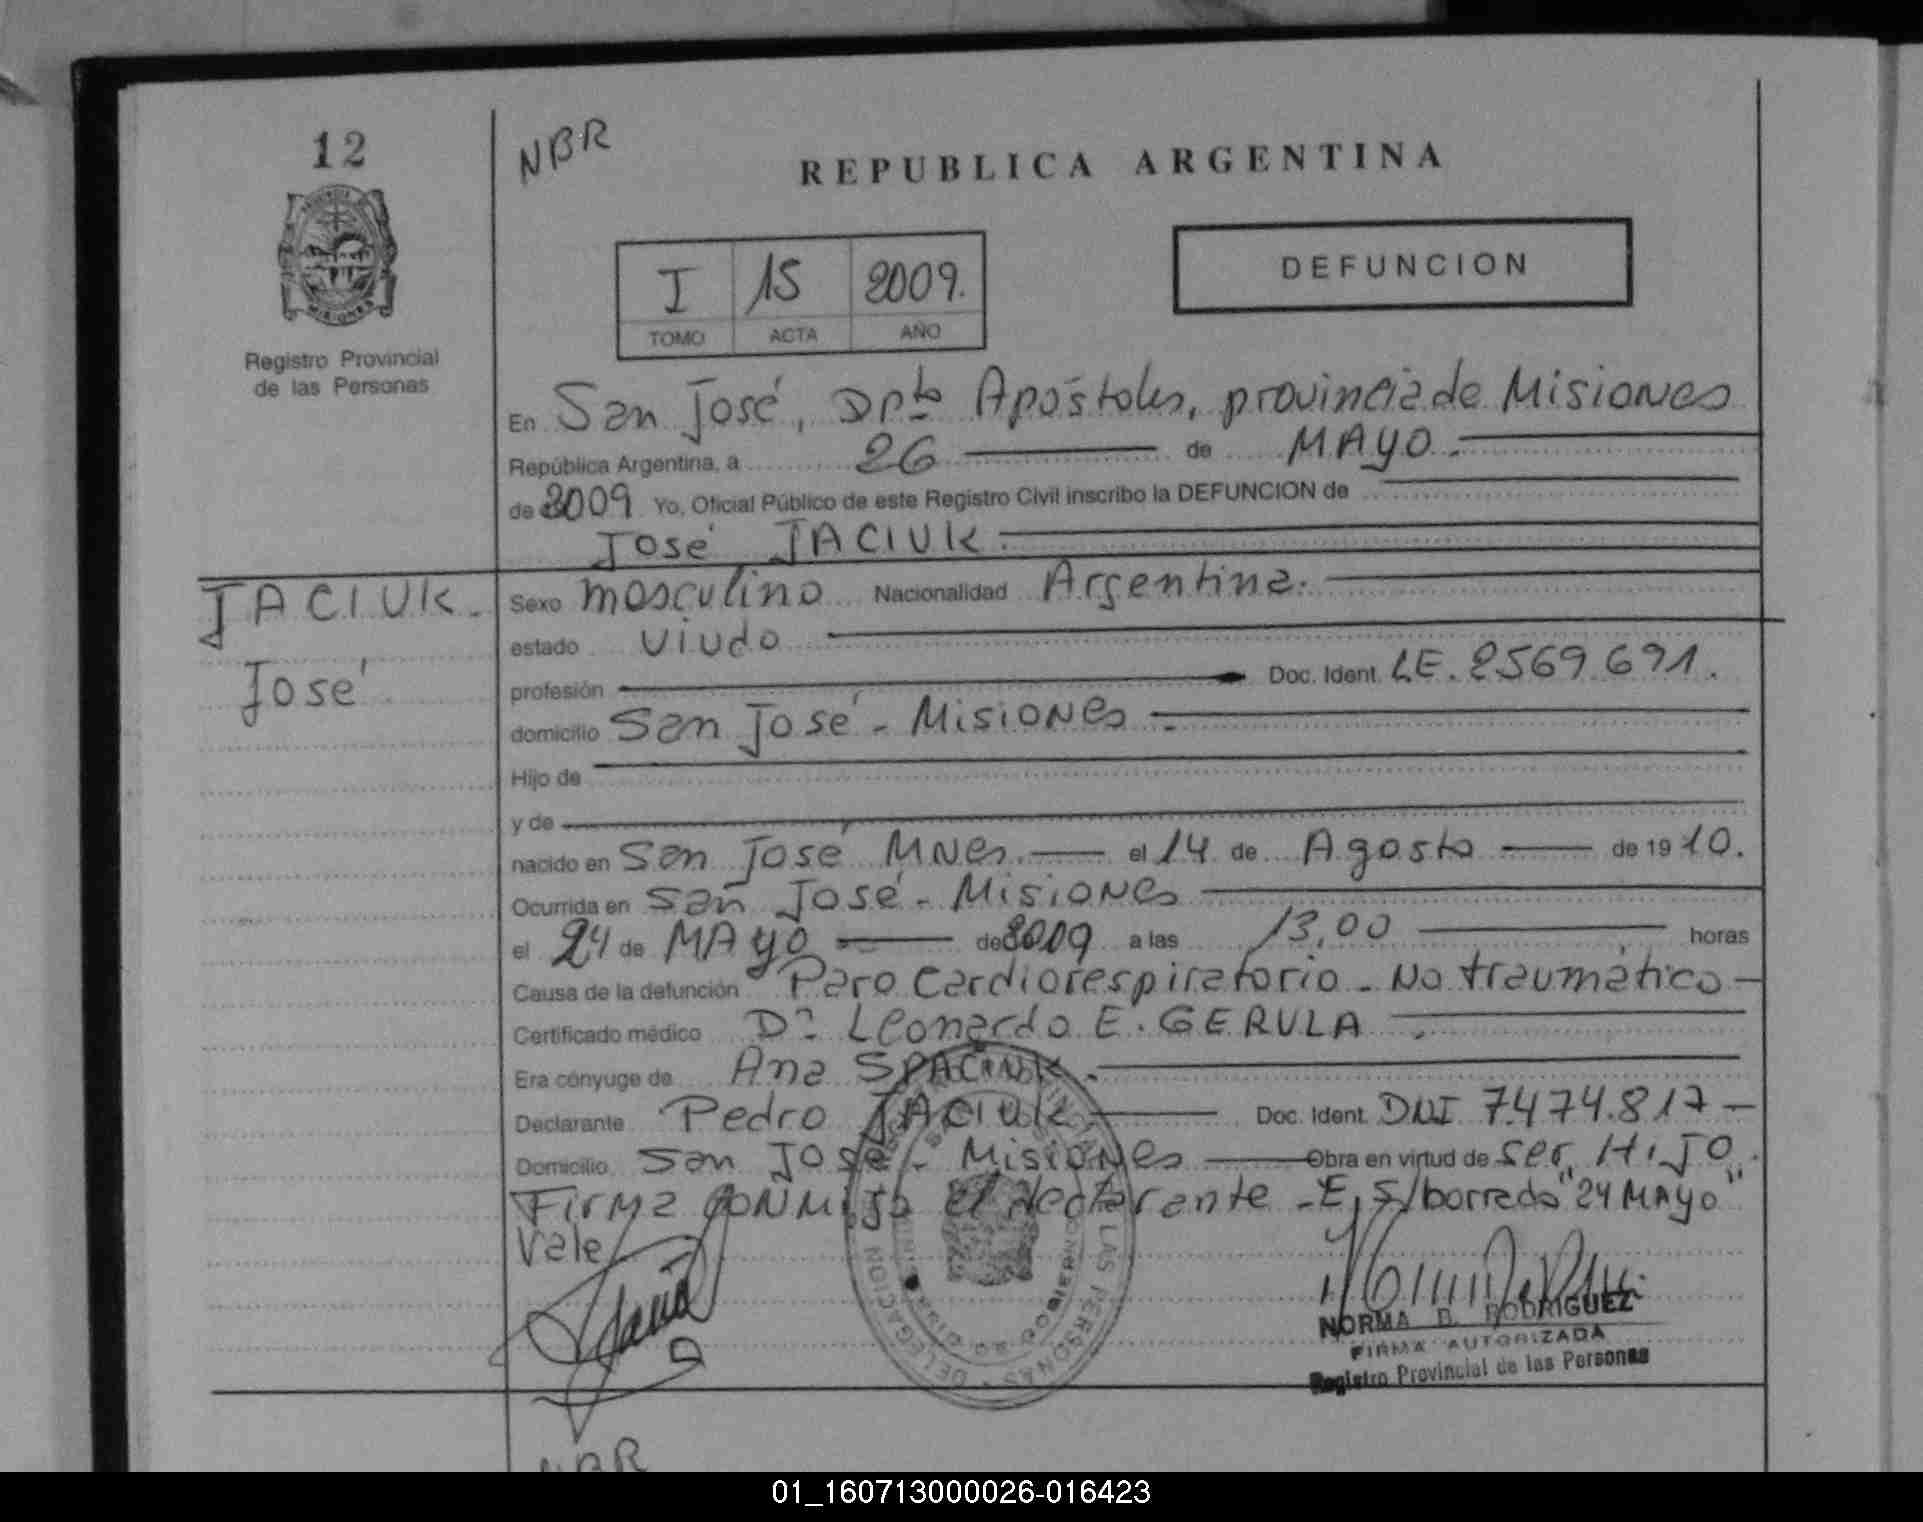 12
NBR
REPUBLICA ARGENTINA
Registro Provincial
de las Personas
I 15 2009.
TOMO ACTA AÑO
DEFUNCION
En San José, Dpto Apóstoles, provincia de Misiones
República Argentina, a 26 de MAYO.
de 2009 Yo, Oficial Público de este Registro Civil inscribo la DEFUNCION de
José JACIUK.
JACIUK.
José
Sexo masculino Nacionalidad Argentina.
estado viudo
profesión Doc. Ident. LE. 2569.691.
domicilio San José - Misiones
Hijo de
y de
nacido en San José MNes. el 14 de Agosto de 1910.
Ocurrida en San José - Misiones
el 24 de MAYO de 2009 a las 13,00 horas
Causa de la defunción Paro Cardiorespiratorio - No traumático -
Certificado médico Dr. Leonardo E. GERULA
Era cónyuge de Ana SPACIUK.
Declarante Pedro JACIUK Doc. Ident. DNI 7.474.817 -
Domicilio San José - Misiones Obra en virtud de ser Hijo.
Firma conmigo el declarante - E, S/borrado "24 MAYO"
Vale
NORMA B. RODRIGUEZ
FIRMA AUTORIZADA
Registro Provincial de las Personas
NBR
01_160713000026-016423